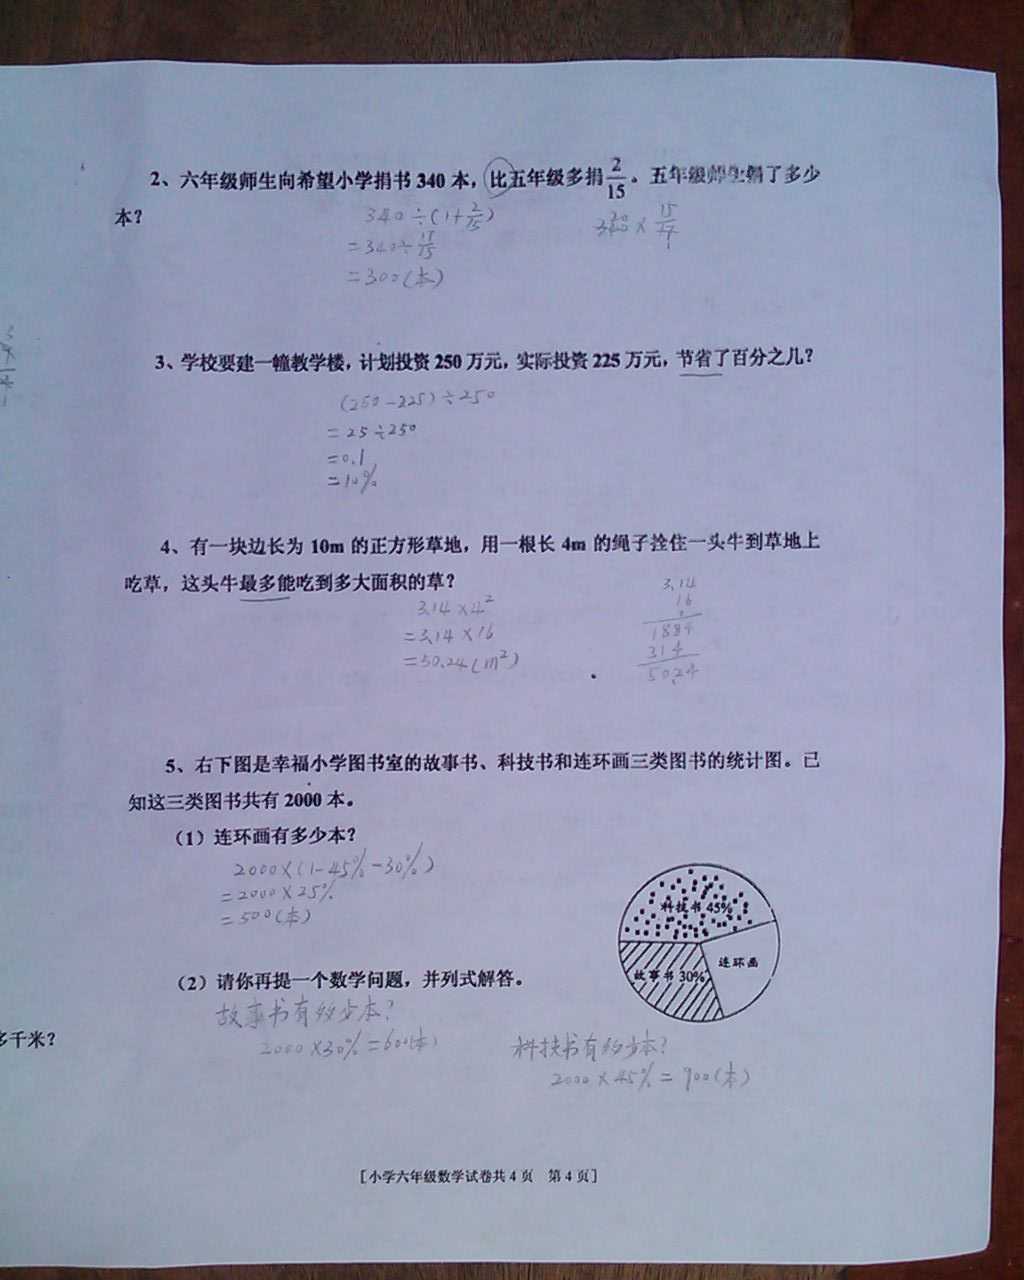 2、六年级师生向希望小学捐书 340 本，比五年级多捐 2/15 。五年级师生捐了多少
本？
340÷(1+2/15)
=340÷17/15
=300(本)
340 × 15/17
20
1
3、学校要建一幢教学楼，计划投资 250 万元，实际投资 225 万元，节省了百分之几？
(250-225)÷250
=25÷250
=0.1
=10%
4、有一块边长为 10m 的正方形草地，用一根长 4m 的绳子拴住一头牛到草地上
吃草，这头牛最多能吃到多大面积的草？
3.14×4²
=3.14×16
=50.24(m²)
3.14
16
1884
314
50.24
5、右下图是幸福小学图书室的故事书、科技书和连环画三类图书的统计图。已
知这三类图书共有 2000 本。
（1）连环画有多少本？
2000×(1-45%-30%)
=2000×25%
=500(本)
科技书 45%
连环画
故事书 30%
（2）请你再提一个数学问题，并列式解答。
故事书有多少本？
2000×30%=600(本)
科技书有多少本？
2000×45%=900(本)
多千米？
[小学六年级数学试卷共 4 页 第 4 页]